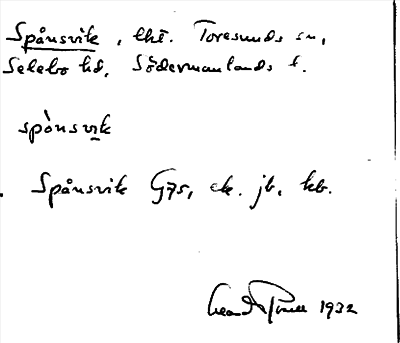 Spånsvik, lht. Toresunds sn,
Selebo hd, Södermanlands l.
spònsvik
Spånsvik G75, ek. jb, kb.
1932